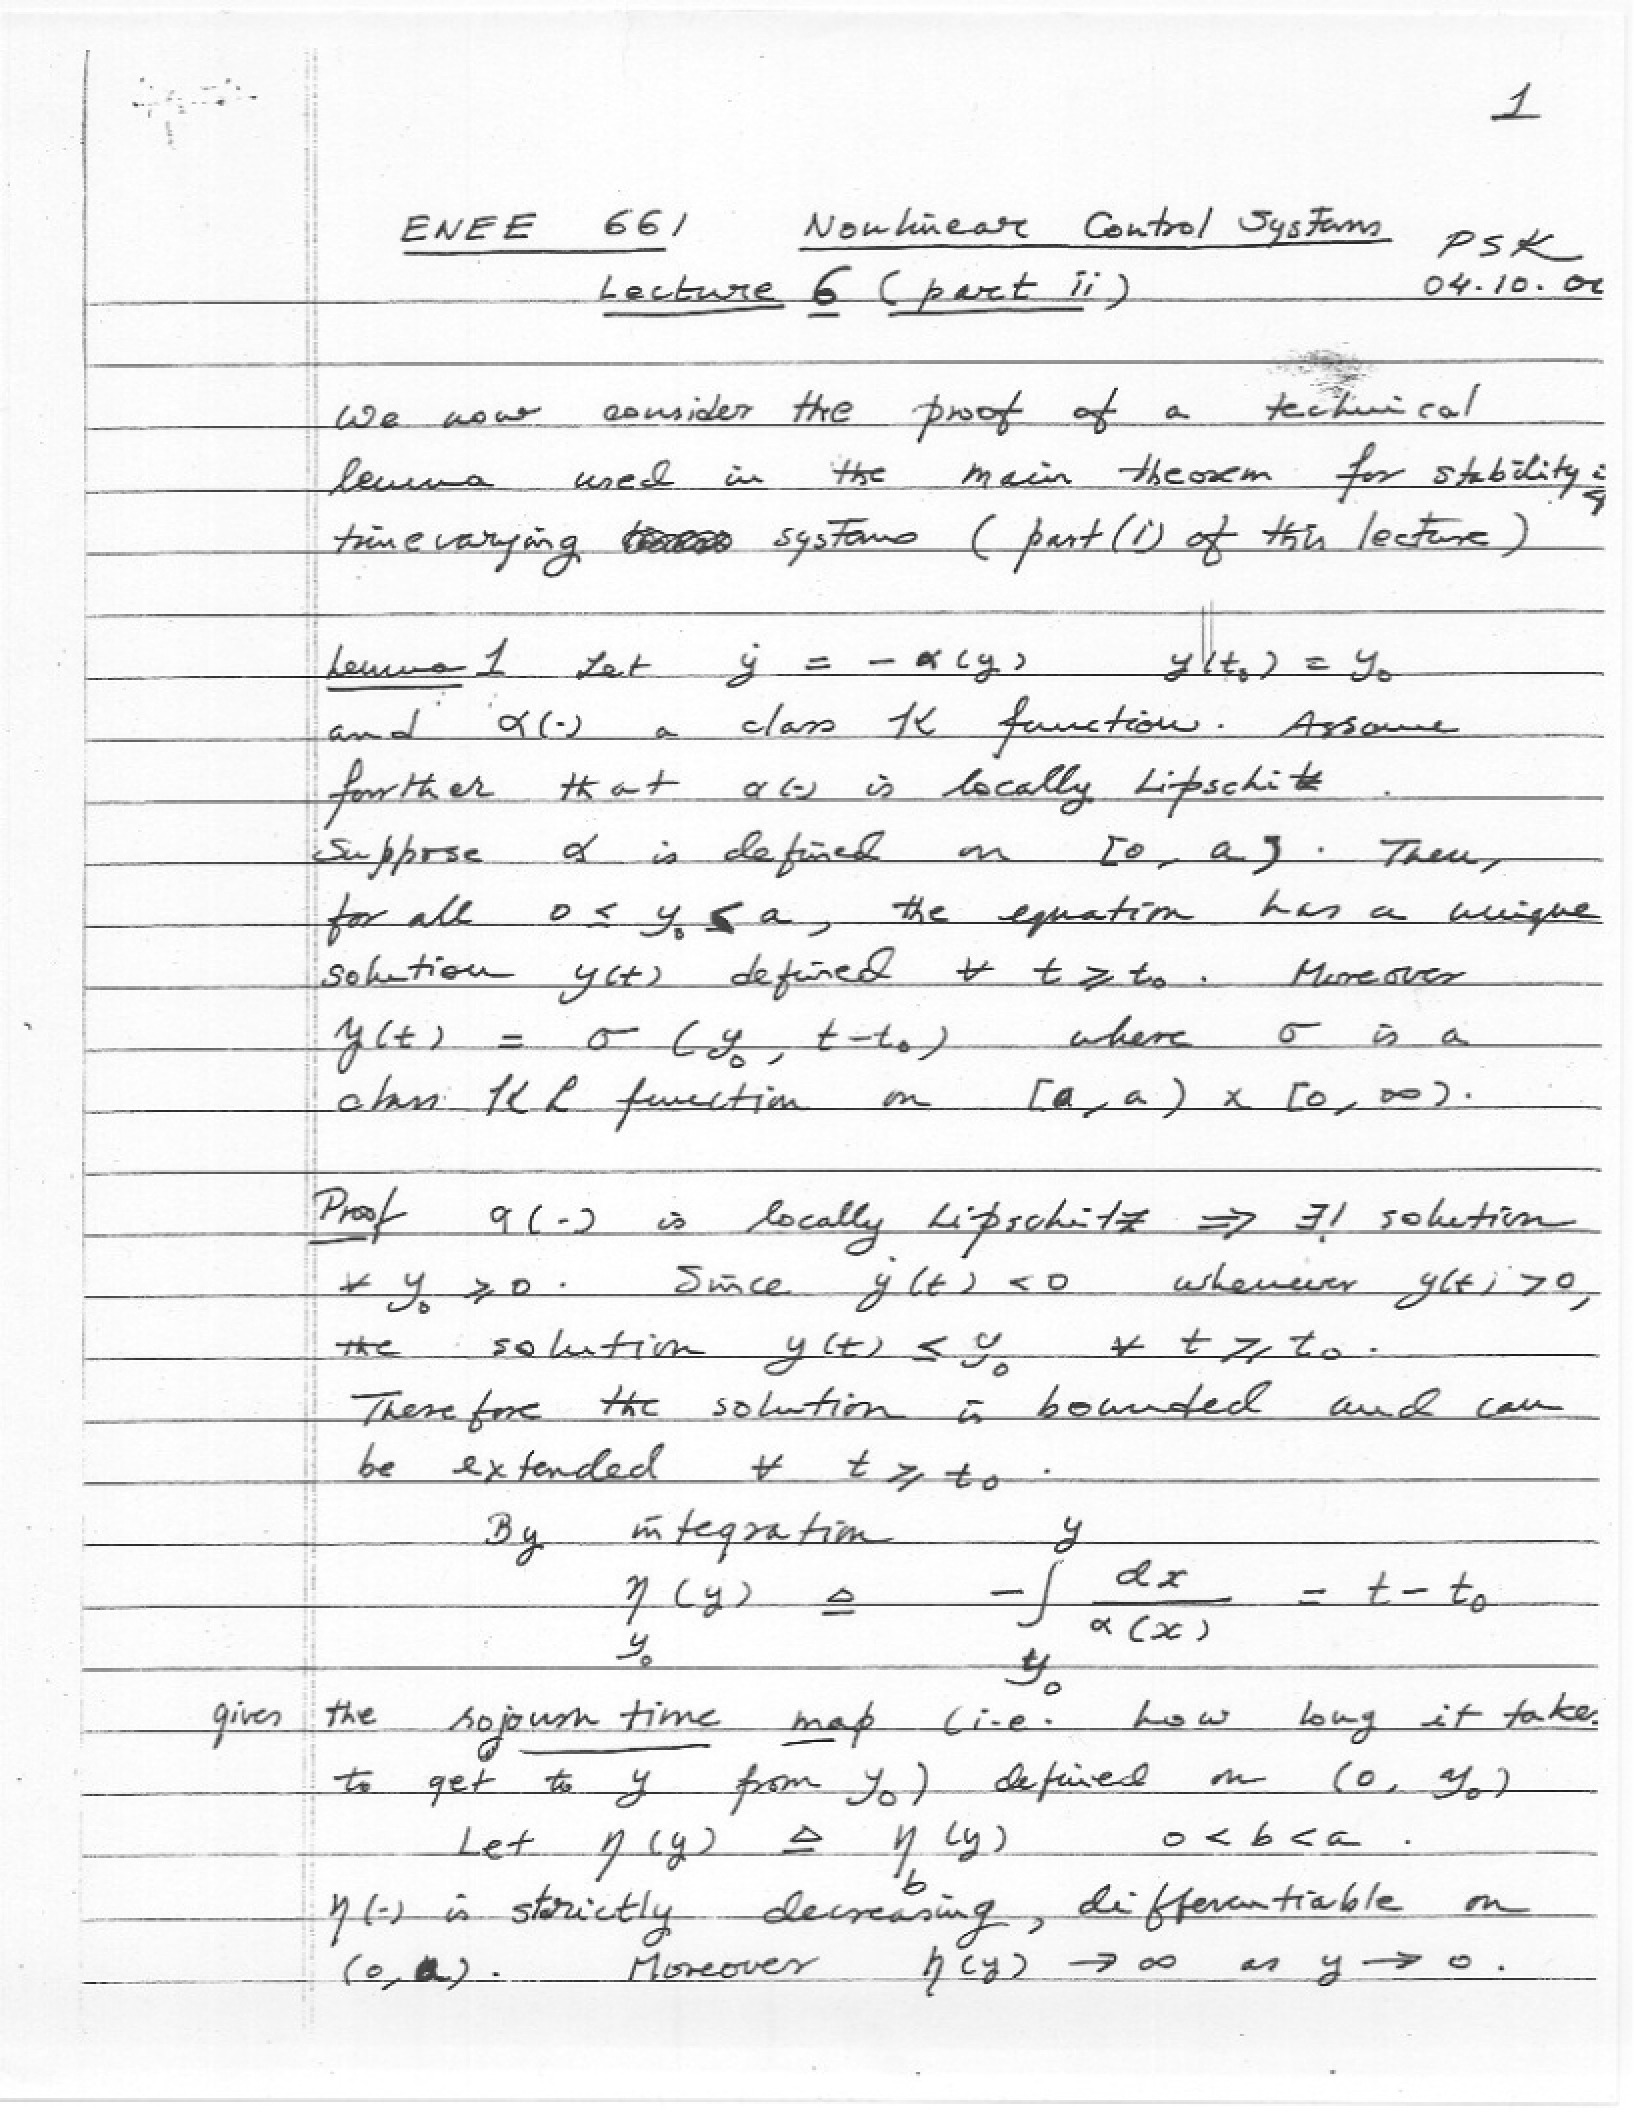 1
ENEE 661 Nonlinear Control Systems
PSK
Lecture 6 (part ii)
04.10.0
We now consider the proof of a technical
lemma used in the main theorem for stability of
timevarying systems (part (i) of this lecture)
Lemma 1 Let ẏ = - α(y) y(t₀) = y₀
and α(·) a class K function. Assume
further that α(·) is locally Lipschitz.
Suppose α is defined on [0, a). Then,
for all 0 ≤ y₀ < a, the equation has a unique
solution y(t) defined ∀ t ≥ t₀. Moreover
y(t) = σ (y₀, t-t₀) where σ is a
class KL function on [0, a) x [0, ∞).
Proof α(·) is locally Lipschitz ⇒ ∃! solution
∀ y₀ ≥ 0. Since ẏ(t) < 0 whenever y(t) > 0,
the solution y(t) ≤ y₀ ∀ t ≥ t₀.
Therefore the solution is bounded and can
be extended ∀ t ≥ t₀.
By integration
η_{y₀}(y) ≜ -∫_{y₀}^{y} dx/α(x) = t - t₀
gives the sojourn time map (i.e. how long it takes
to get to y from y₀) defined on (0, y₀)
Let η(y) ≜ η_b(y) 0 < b < a.
η(·) is strictly decreasing, differentiable on
(0, a). Moreover η(y) → ∞ as y → 0.